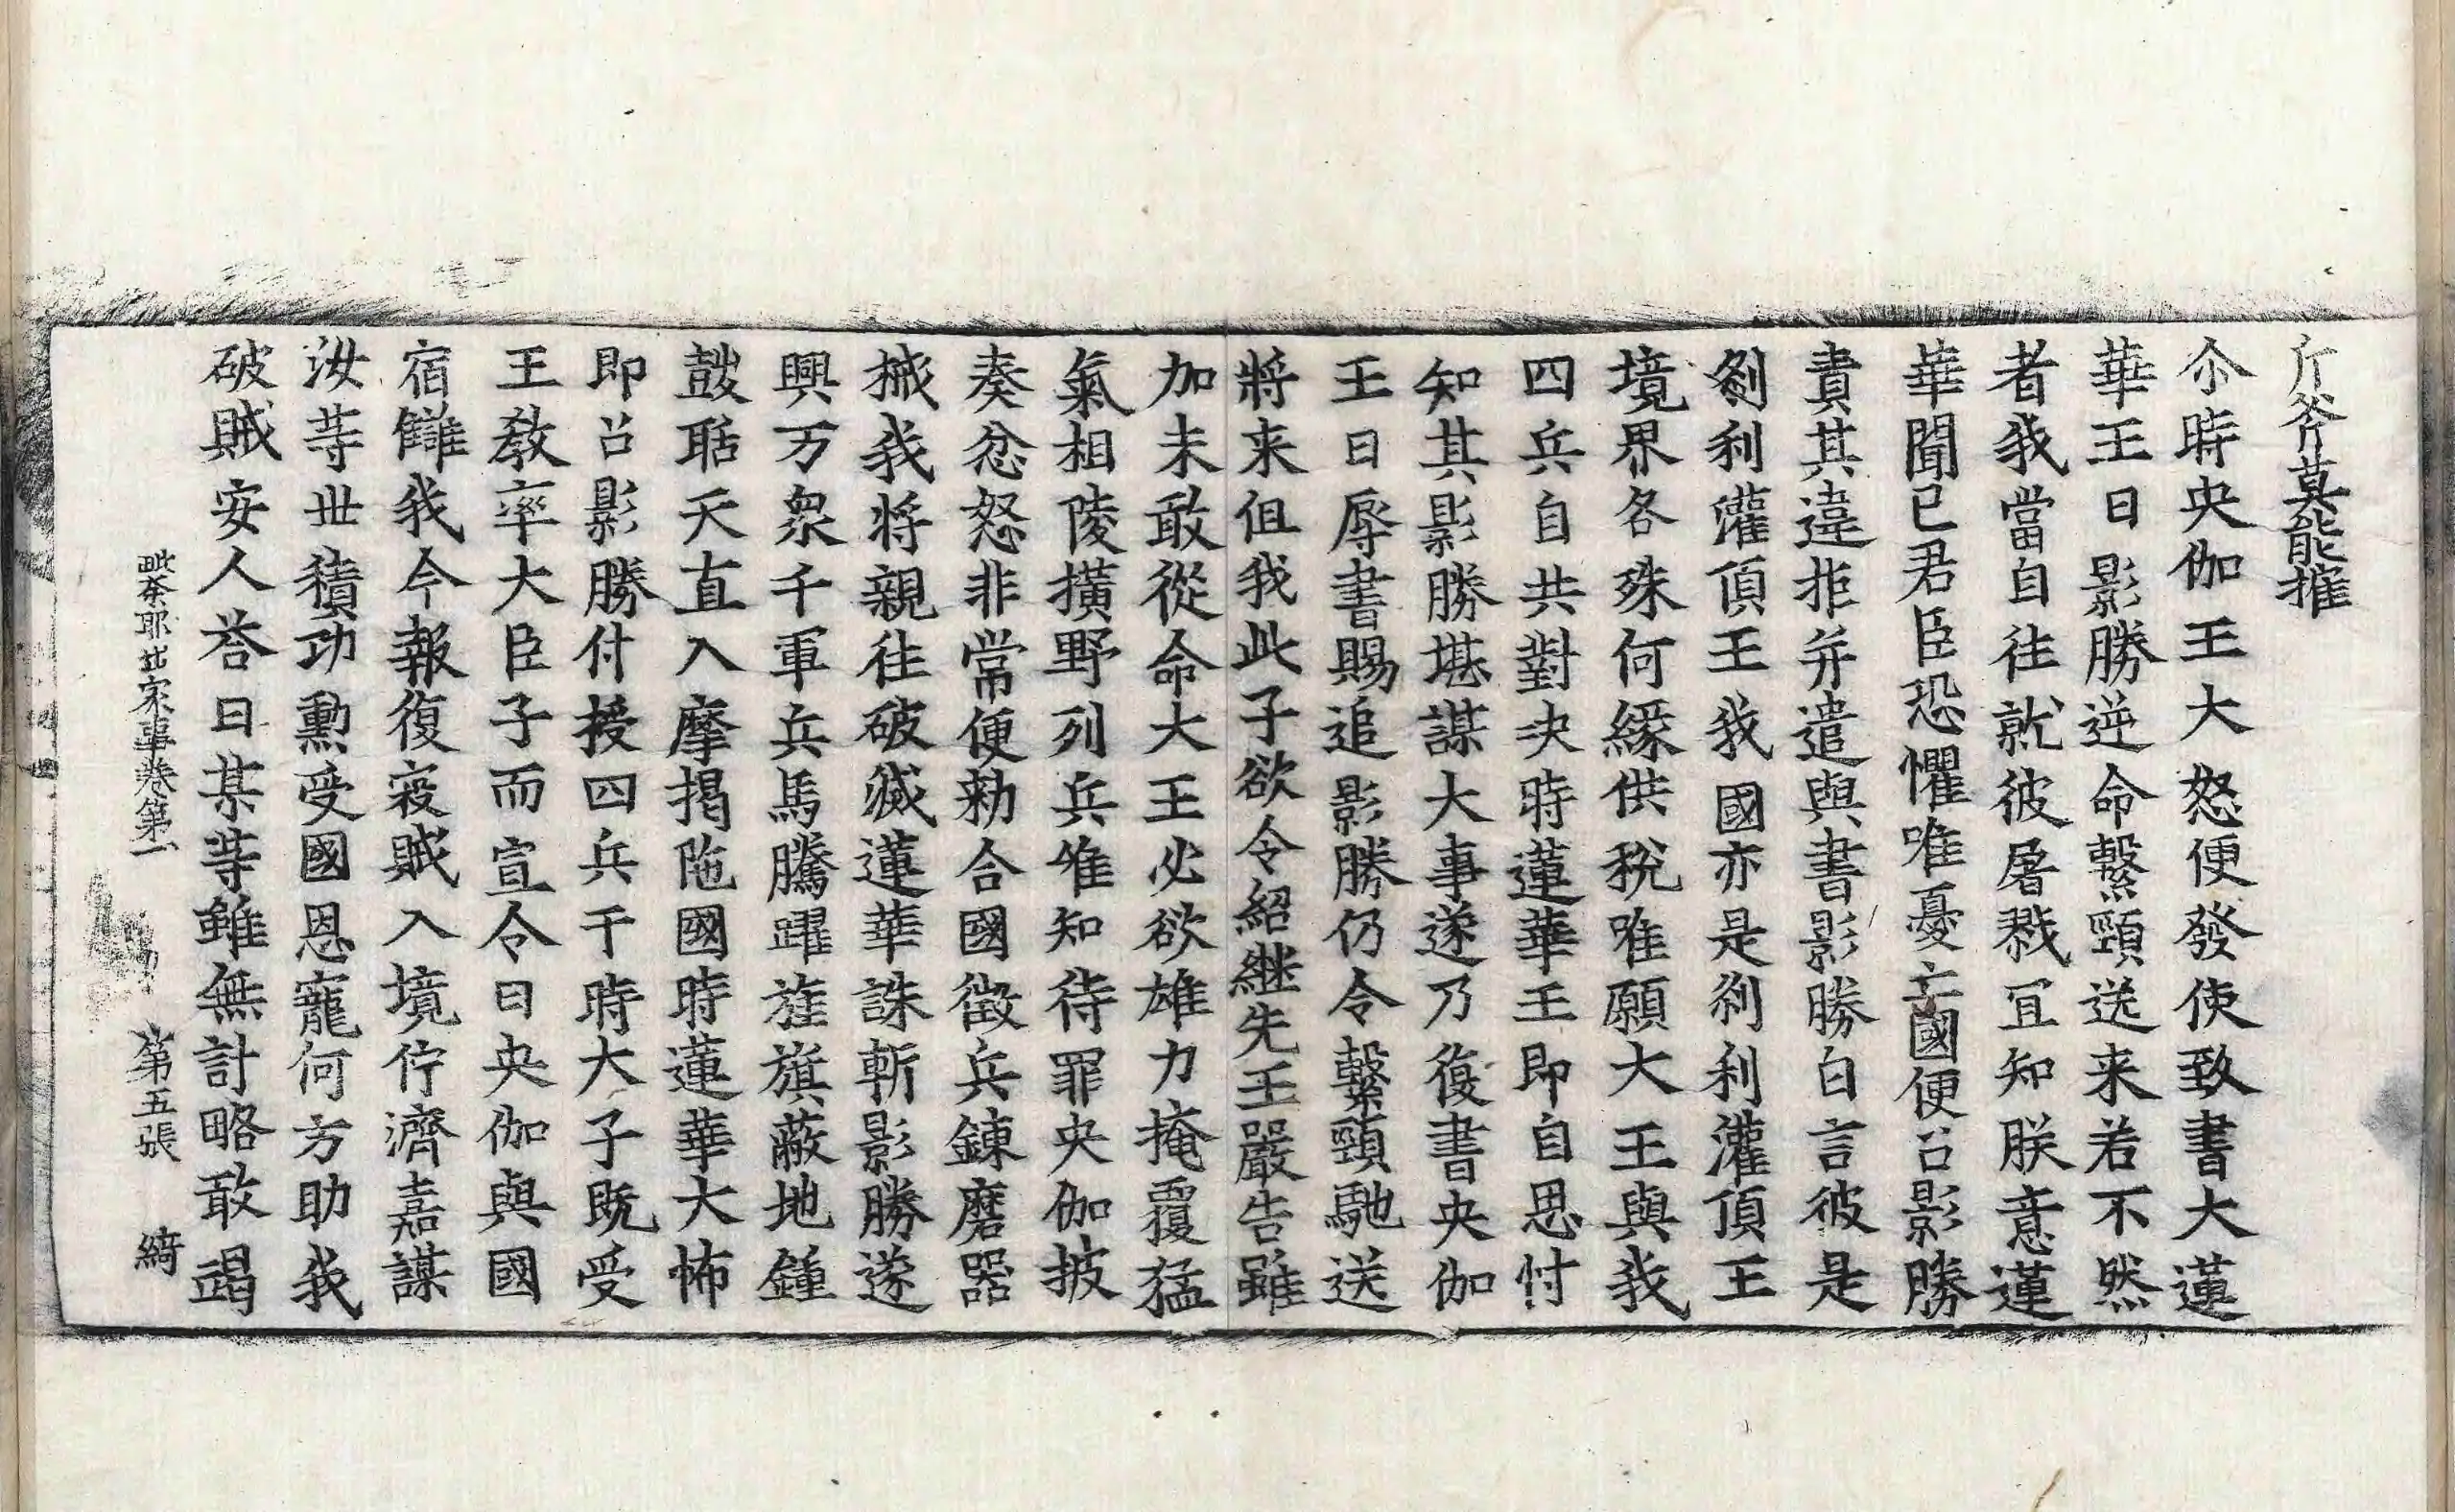 斤斧莫能摧
尒時央伽王大怒便發使致書大蓮
華王曰影勝逆命繫頸送来若不然
者我當自往就彼屠戮冝知朕意蓮
華聞已君臣恐懼唯憂亡國便召影勝
責其違拒并遣與書影勝白言彼是
剎利灌頂王我國亦是剎利灌頂王
境界各殊何緣供稅唯願大王與我
四兵自共對決時蓮華王即自思忖
知其影勝堪謀大事遂乃復書央伽
王曰辱書賜追影勝仍令繫頸馳送
將来但我此子欲令紹継先王嚴告雖
加未敢從命大王必欲雄力掩覆猛
氣相陵擴野列兵唯知待罪央伽披
奏忿怒非常便勑合國徵兵鍊磨器
械我將親往破滅蓮華誅斬影勝遂
興万衆千軍兵馬騰躍旌旗蔽地鍾
鼓聒天直入摩揭陁國時蓮華大怖
即召影勝付授四兵于時大子既受
王教率大臣子而宣令曰央伽與國
宿讎我今報復寇賊入境佇濟嘉謀
汝䓁丗積功勳受國恩寵何方助我
破賊安人荅曰某䓁雖無計略敢竭
毗奈耶出家事卷第一　第五張　綺